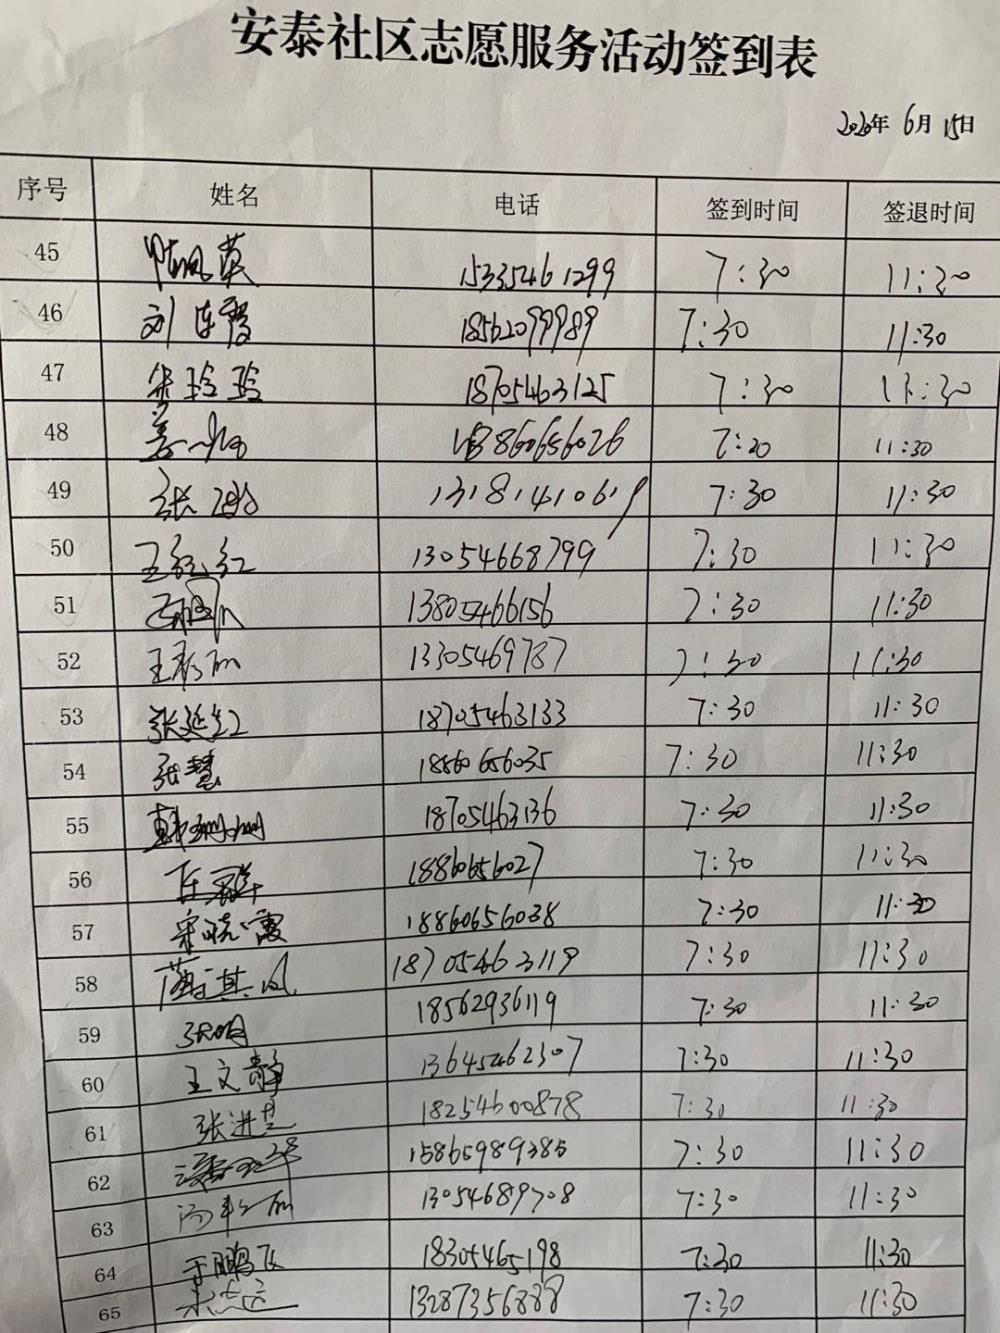 安泰社区志愿服务活动签到表
2020年 6月 15日
序号 姓名 电话 签到时间 签退时间
45 15335461299 7:30 11:30
46 刘连霞 18562099989 7:30 11:30
47 朱玲玲 18705463125 7:30 11:30
48 姜 18860656026 7:20 11:30
49 张 13181410619 7:30 11:30
50 王红红 13054668799 7:30 11:30
51 13805466156 7:30 11:30
52 王彩丽 13305469787 7:30 11:30
53 张延红 18705463133 7:30 11:30
54 张慧 18860656035 7:30 11:30
55 韩珊珊 18705463136 7:30 11:30
56 18860656027 7:30 11:30
57 宋晓霞 18860656038 7:30 11:30
58 其凤 18705463119 7:30 11:30
59 张明 18562936119 7:30 11:30
60 王文静 13645462307 7:30 11:30
61 张进 18254600878 7:30 11:30
62 15865989385 7:30 11:30
63 13054689708 7:30 11:30
64 于鹏飞 18305465198 7:30 11:30
65 13287356888 7:30 11:30